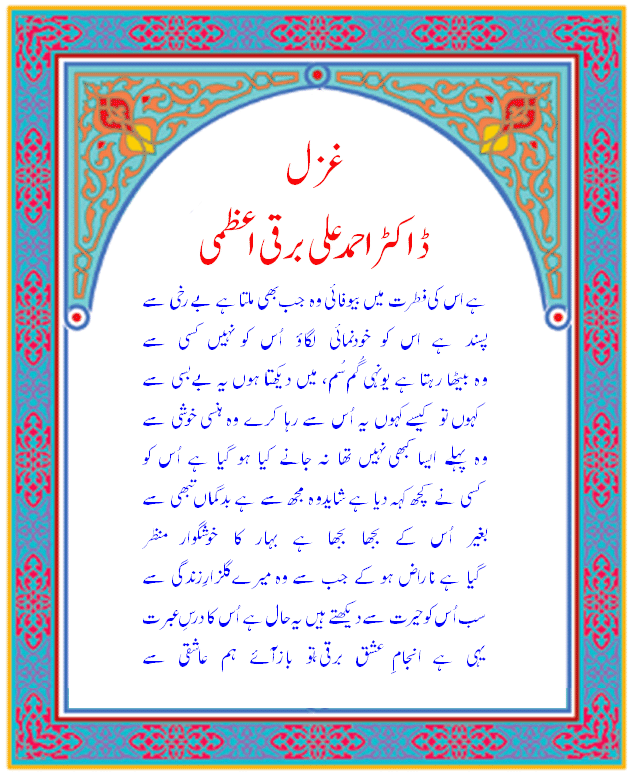 غزل
ڈاکٹر احمد علی برقی اعظمی
ہے اس کی فطرت میں بیوفائی وہ جب بھی ملتا ہے بے رخی سے
پسند ہے اس کو خودنمائی لگاؤ اُس کو نہیں کسی سے
وہ بیٹھا رہتا ہے یونہی گُم سُم، میں دیکھتا ہوں یہ بے بسی سے
کہوں تو کیسے کہوں یہ اُس سے رہا کرے وہ ہنسی خوشی سے
وہ پہلے ایسا کبھی نہیں تھا نہ جانے کیا ہو گیا ہے اُس کو
کسی نے کچھ کہہ دیا ہے شاید وہ مجھ سے ہے بدگماں تبھی سے
بغیر اُس کے بجھا بجھا ہے بہار کا خوشگوار منظر
گیا ہے ناراض ہو کے جب سے وہ میرے گلزارِ زندگی سے
سب اُس کو حیرت سے دیکھتے ہیں یہ حال ہے اُس کا درسِ عبرت
یہی ہے انجامِ عشق برقی تو باز آئے ہم عاشقی سے